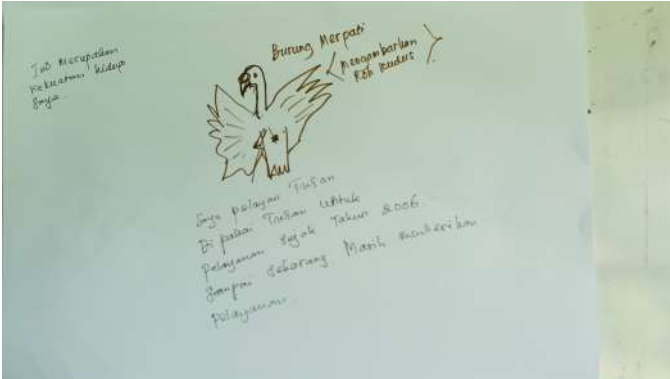 Ini Merupakan
Kekuatan hidup
Saya
Burung Merpati
Menggambarkan
Roh Kudus
Saya pelayan Tuhan
Di pakai Tuhan untuk
pelayanan sejak Tahun 2006
Sampai sekarang Masih memberikan
pelayanan.